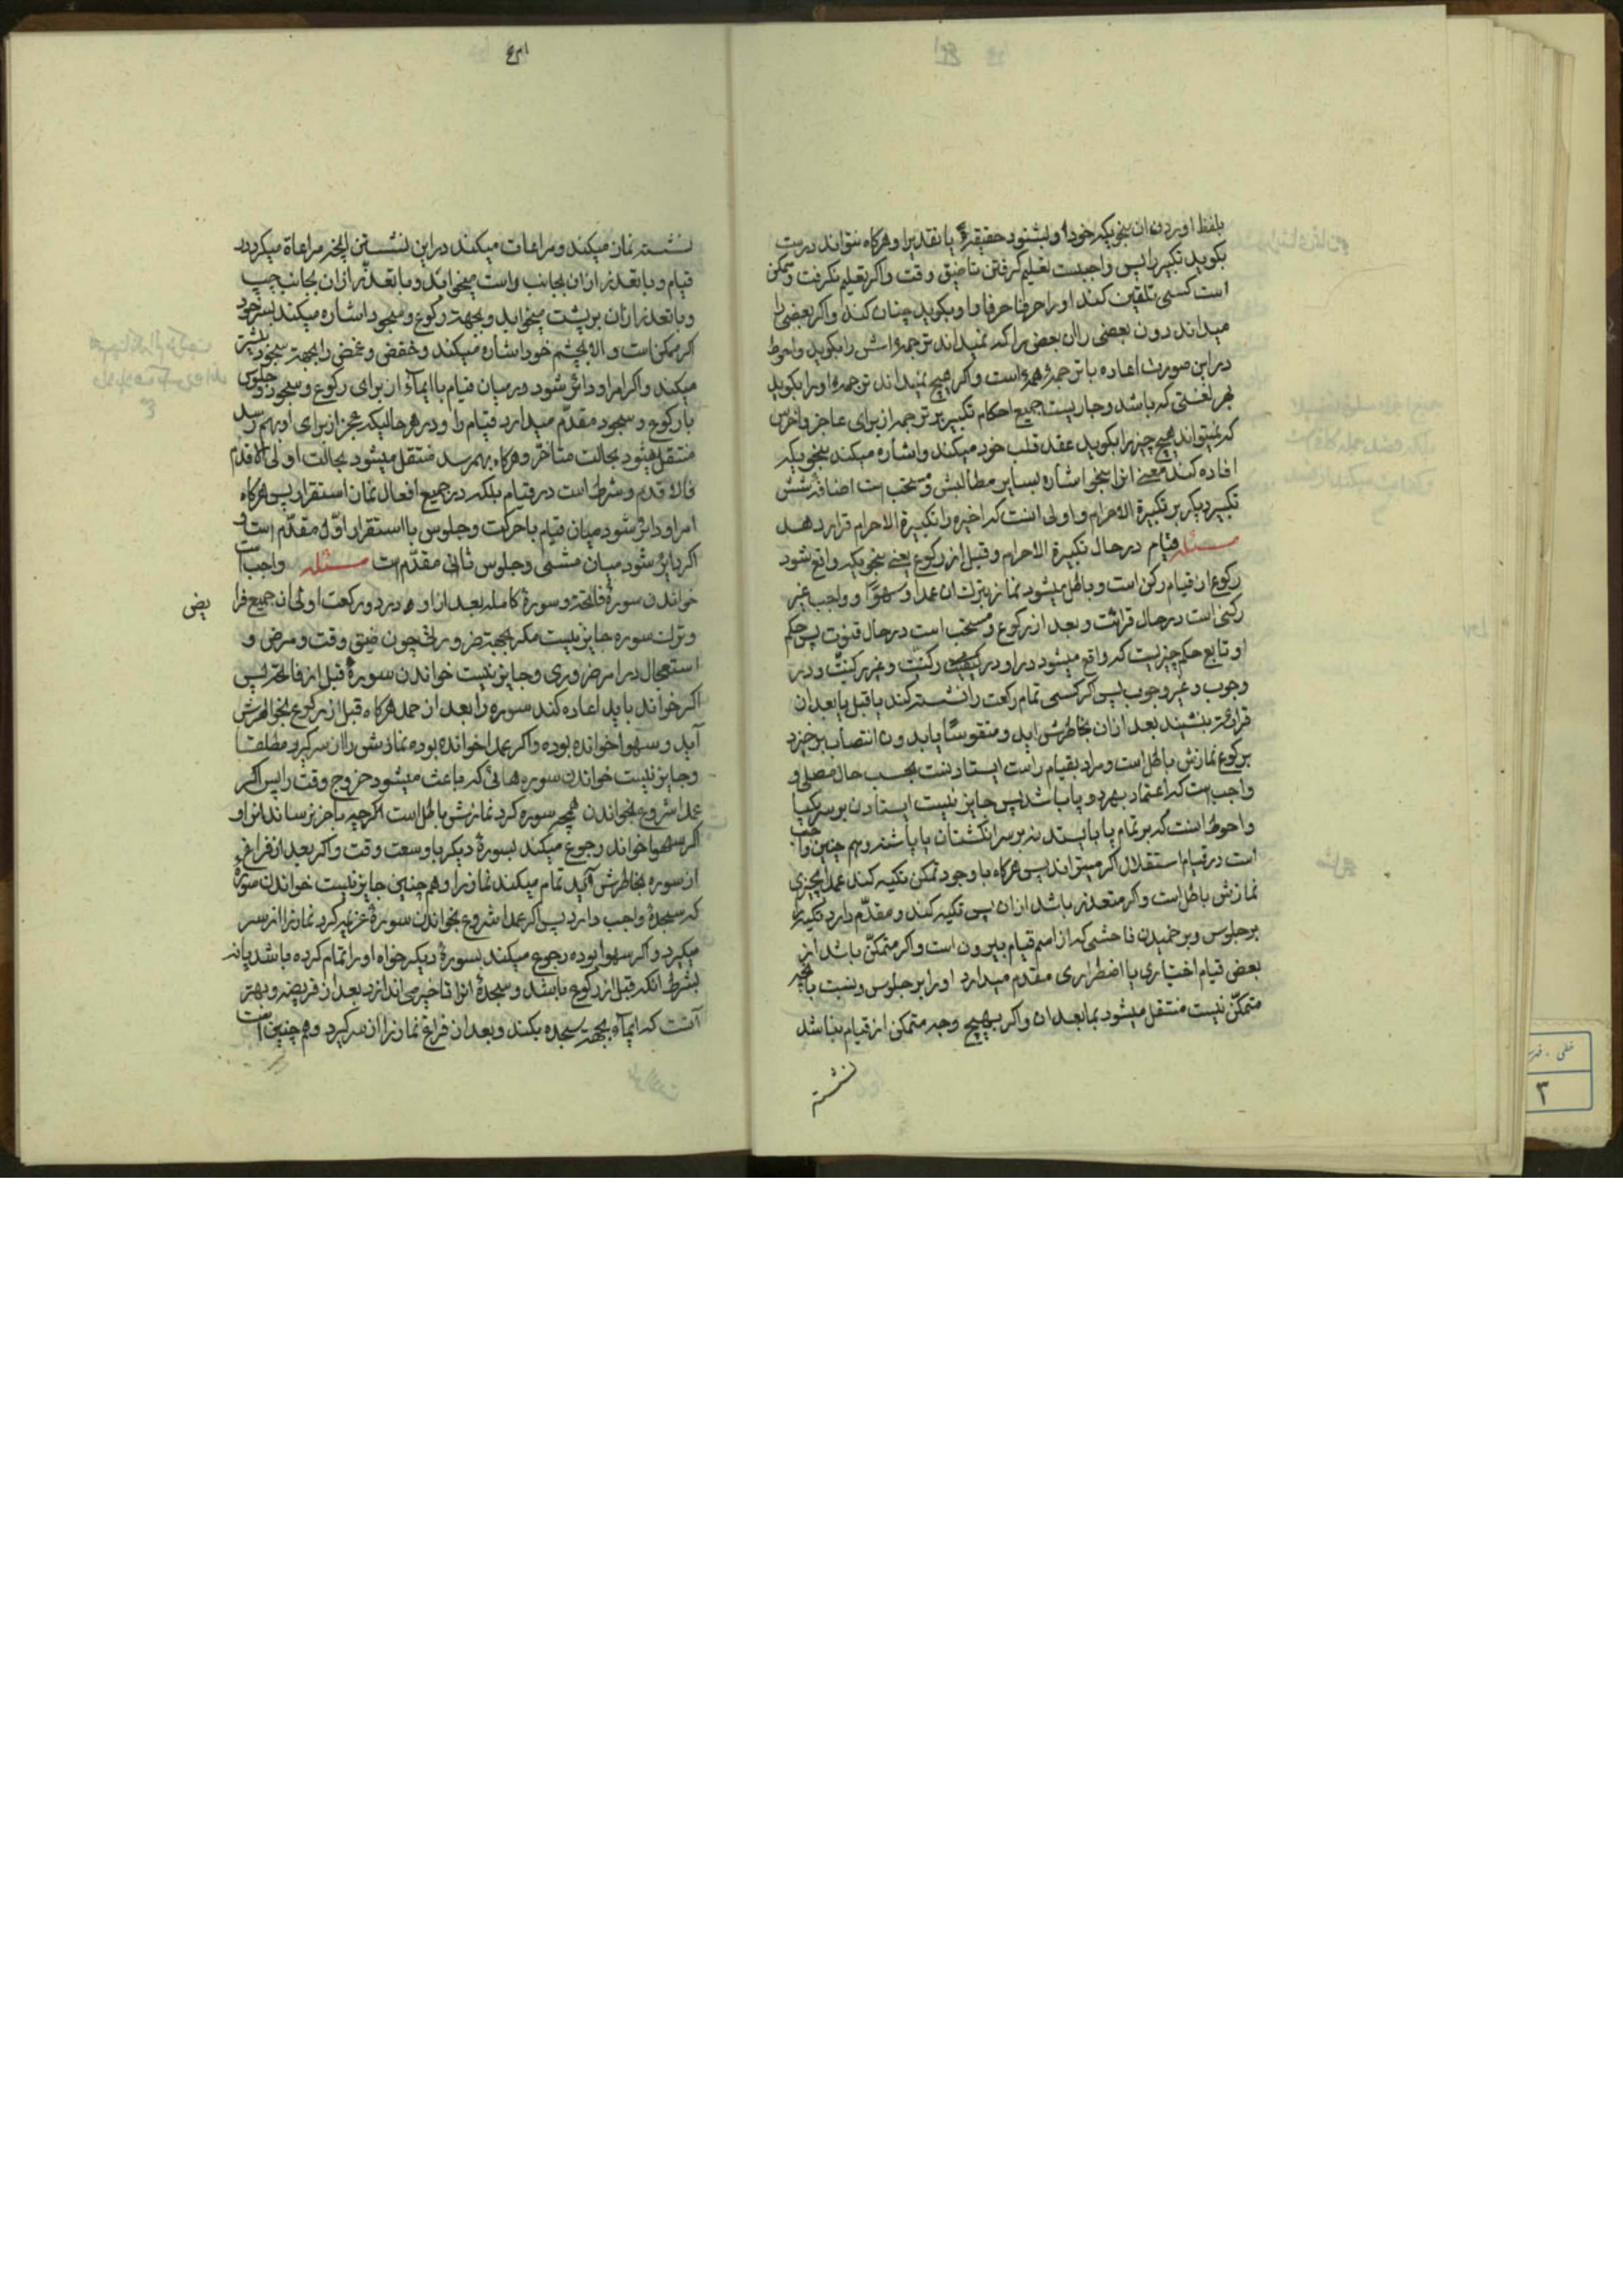 بلفظ اوردن ان بنحویکه خود او بشنود حقیقةً یا تقدیرا و هرکاه نتواند درست
بکوید تکبیر را پس واجبست تعلیم کرفتن تا ضیق وقت و اکر تعلیم نکرفت و ممکن
است کسی تلقین کند او را حرفا حرفا و او بکوید چنان کند و اکر بعضی را
میداند دون بعضی را ان بعضی را که نمیداند ترجمه اش را بکوید و احوط
در این صورت اعاده با ترجمهٔ همه است و اکر هیچ نمیداند ترجمه او را بکوید
بهر لغتی که باشد و جاریست جمیع احکام تکبیر بر ترجمه از برای عاجز و اخرس
که نمیتواند هیچ چیز را بکوید عقد قلب خود میکند و اشاره میکند بنحویکه
افاده کند معنی انرا بنحو اشاره بسایر مطالبش و مستحب است اضافهٔ شش
تکبیر دیکر بر تکبیرة الاحرام و اولی انست که اخیره را تکبیرة الاحرام قرار دهد
مسئله قیام در حال تکبیرة الاحرام و قبل از رکوع یعنی بنحویکه واقع شود
رکوع از قیام رکن است و باطل میشود نماز بترک ان عمدا و سهوًا و واجب غیر
رکنی است در حال قرائت و بعد از رکوع و مستحب است در حال قنوت پس حکم
او تابع حکم چیزیست که واقع میشود در او در کیفیت رکنیّت و غیر رکنیّت و در
وجوب و غیر وجوب پس اکر کسی تمام رکعت را نشسته کند یا قبل یا بعد از
قرائت بنشیند بعد از ان بخاطرش اید و متقوسًا یا بدون انتصاب برخیزد
برکوع نمازش باطل است و مراد بقیام راست ایستادنست بحسب حال مصلی و
واجب است که اعتماد بهر دو پا باشد پس جایز نیست ایستادن بر سر یکپا
و احوط انست که بر تمام پا بایستد نه بر سر انکشتان یا پاشنه و هم چنین واجب
است در قیام استقلال اکر میتواند پس هرکاه با وجود تمکن تکیه کند عمدا بچیزی
نمازش باطل است و اکر متعذر باشد از ان پس تکیه کند و مقدّم دارد تکیه را
بر جلوس و بر خمیدن فاحشی که از اسم قیام بیرون است و اکر متمکّن باشد از
بعض قیام اختیاری یا اضطراری مقدم میدارد او را بر جلوس و نسبت بانچه
متمکّن نیست منتقل میشود بمابعد ان و اکر بهیچ وجه متمکن از قیام نباشد
نشسته
نشسته نماز میکند و مراعات میکند در این نشستن انچه مراعاة میکرد در
قیام و با تعذر از ان بجانب راست میخوابد و با تعذّر از ان بجانب چپ
و با تعذر از ان بر پشت میخوابد و بجهت رکوع و سجود اشاره میکند بسر خود
اکر ممکن است و الا بچشم خود اشاره میکند و خفض و غض را بجهت سجود بیشتر
میکند و اکر امر او دائر شود در میان قیام با ایماء از برای رکوع و سجود و جلوس
با رکوع و سجود مقدّم میدارد قیام را و در هر حالیکه عجز از برای او بهم رسد
منتقل میشود بحالت متاخر و هرکاه بهم رسد منتقل میشود بحالت اولی الاقدم
فالاقدم و شرط است در قیام بلکه در جمیع افعال نماز استقرار پس هرکاه
امر او دائر شود میان قیام با حرکت و جلوس با استقرار اوّلی مقدّم است و
اکر دایر شود میان مشی و جلوس ثانی مقدّم است مسئله واجب است
خواندن سورهٔ فاتحه و سورهٔ کامله بعد از او در دو رکعت اولی از جمیع فرا
یض
و ترک سوره جایز نیست مکر بجهت ضرورتی چون ضیق وقت و مرض و
استعجال در امر ضروری و جایز نیست خواندن سورهٔ قبل از فاتحه پس
اکر خواند باید اعاده کند سوره را بعد از حمد هرکاه قبل از رکوع بخاطرش
آید و سهوا خوانده بوده و اکر عمدا خوانده بوده نمازش را از سر کیرد مطلقا
و جایز نیست خواندن سوره هائی که باعث میشود خروج وقت را پس اکر
عمدا شروع بخواندن همچه سوره کرد نمازش باطل است اکرچه باخر نرساند انرا و
اکر سهوا خواند رجوع میکند بسورهٔ دیکر با وسعت وقت و اکر بعد از فراغ
از سوره بخاطرش آید تمام میکند نماز را و هم چنین جایز نیست خواندن سورهٔ
که سجدهٔ واجب دارد پس اکر عمدا شروع بخواندن سورهٔ عزیمه کرد نماز را از سر
میکیرد و اکر سهوا بوده رجوع میکند بسورهٔ دیکر خواه او را تمام کرده باشد یا نه
بشرط انکه قبل از رکوع باشد و سجدهٔ انرا تاخیر می اندازد بعد از فریضه و بهتر
آنست که ایماء بجهت سجده بکند و بعد از فراغ نماز را از سر کیرد و هم چنین است
خطی
۳